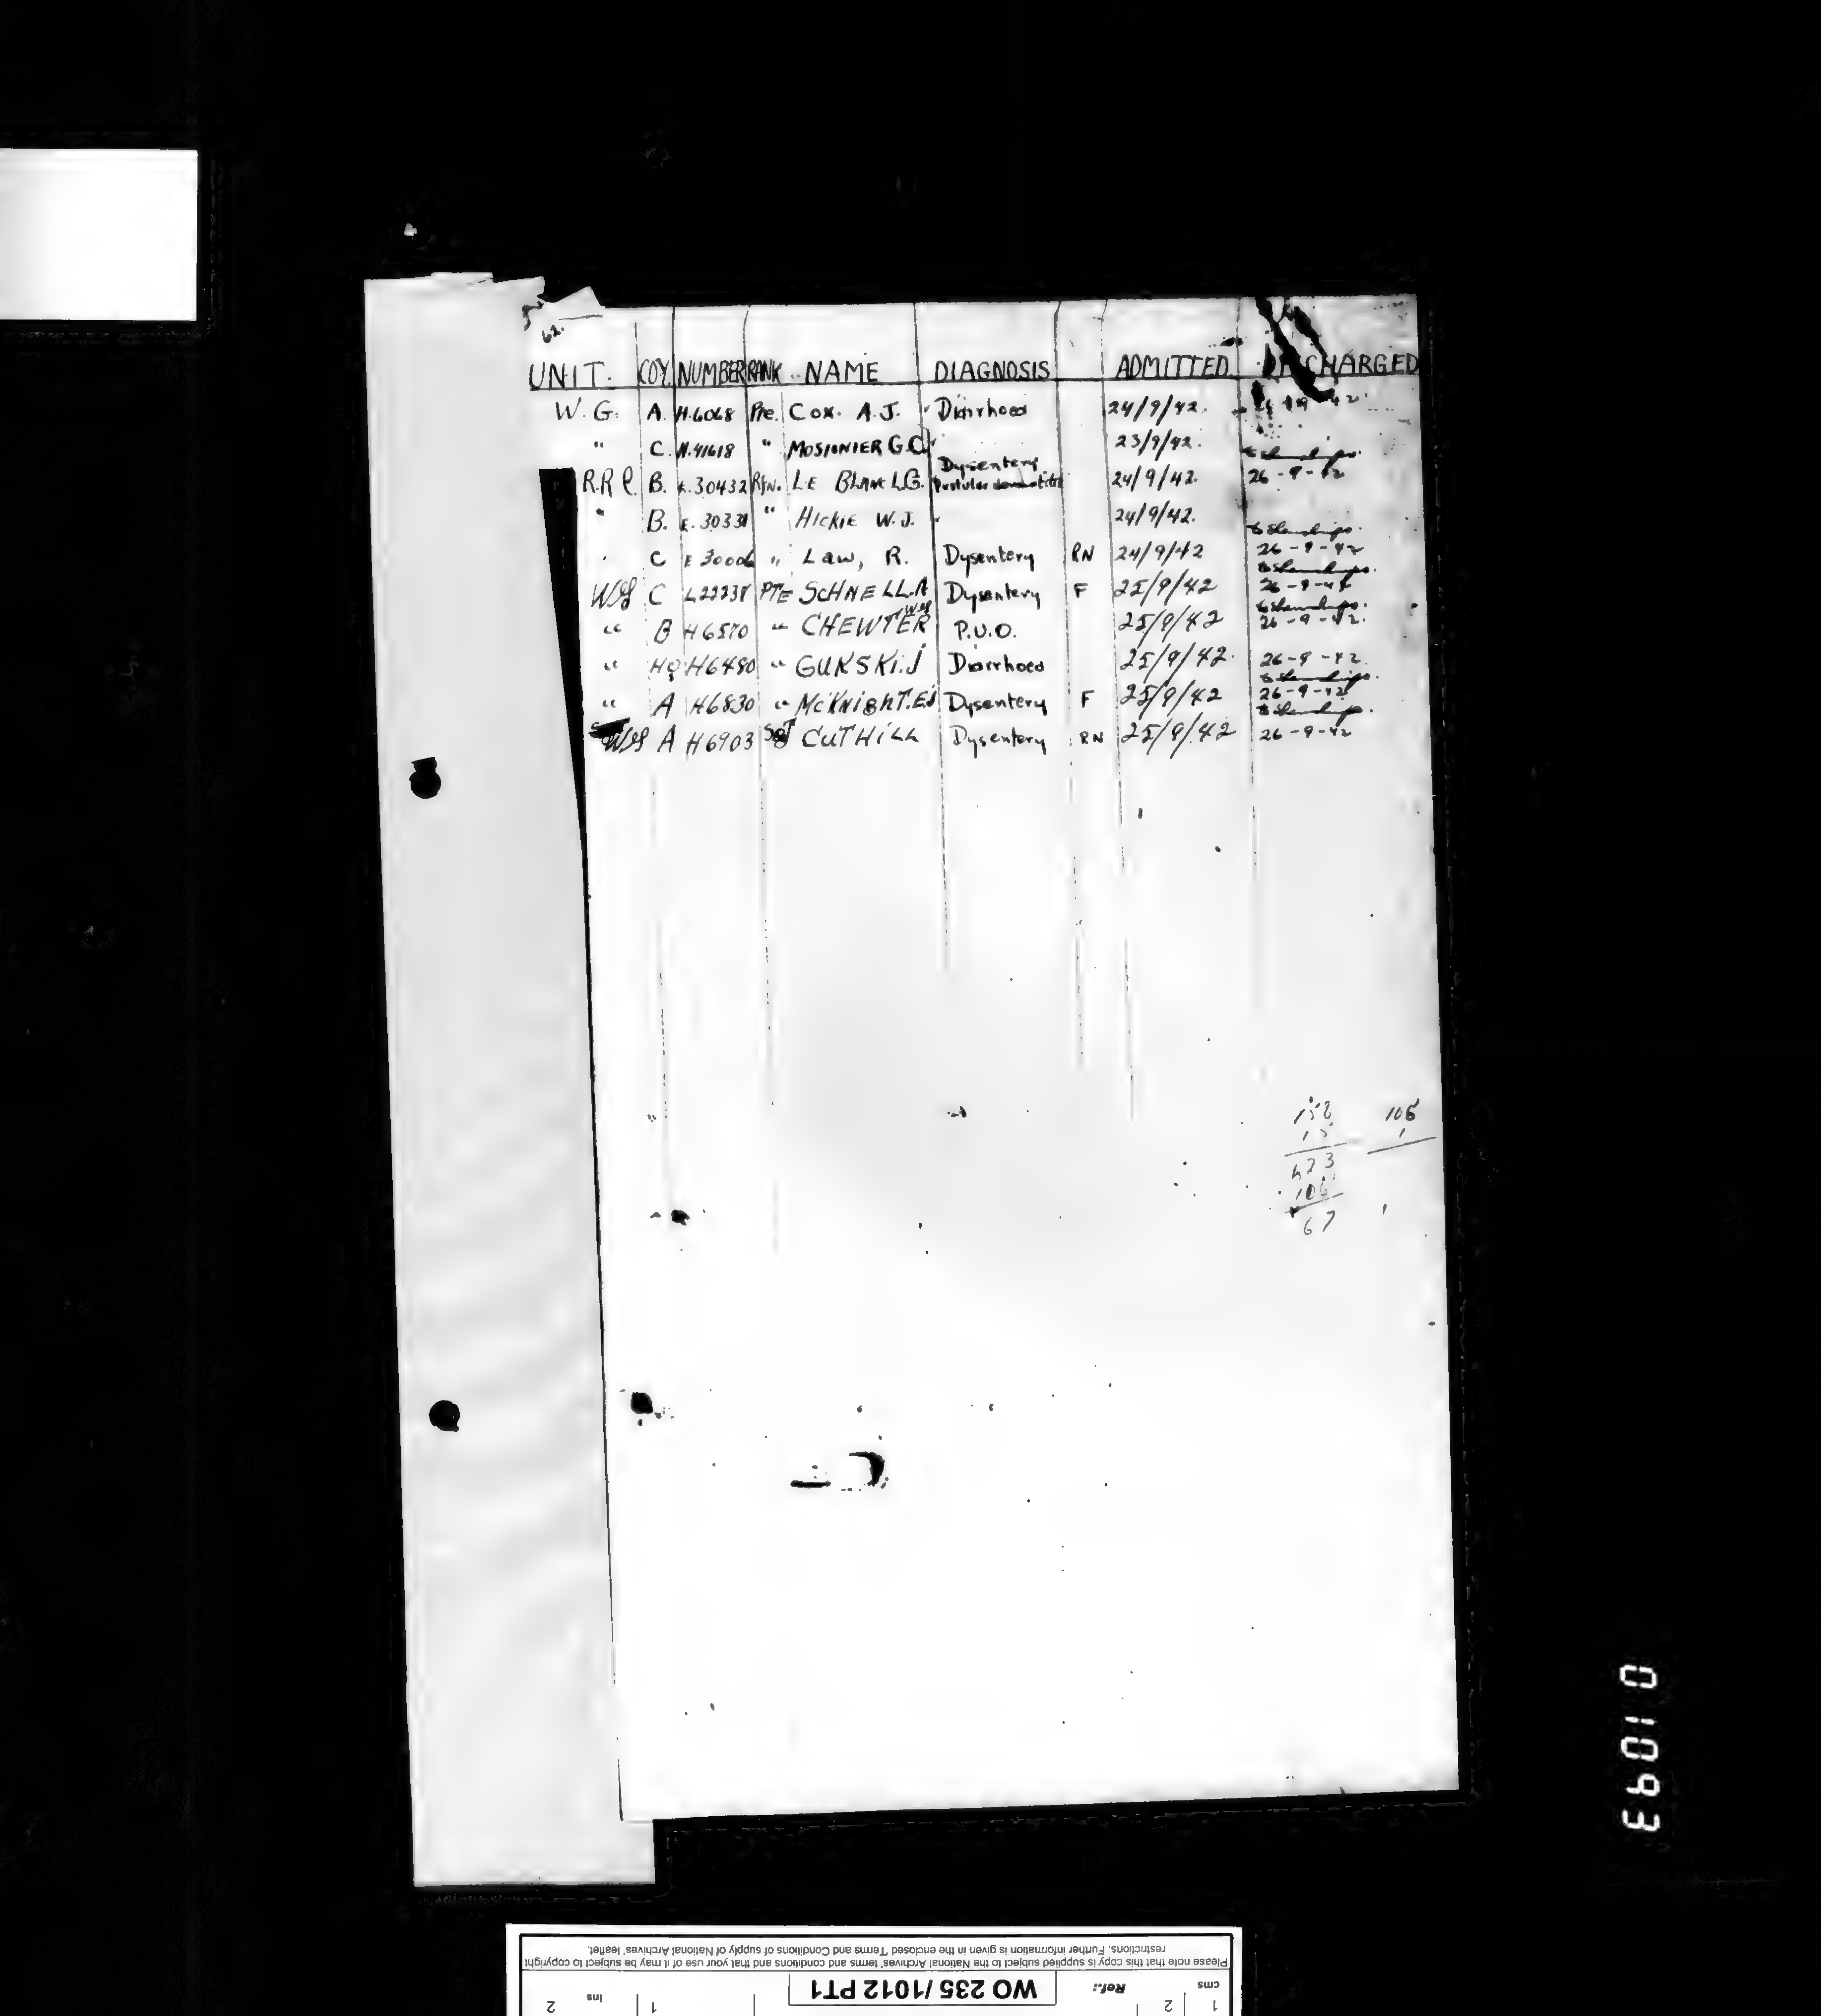 62.
UNIT. COY. NUMBER RANK NAME DIAGNOSIS ADMITTED DISCHARGED
W.G. A. H.6068 Pte. Cox. A.J. Diarrhoea 24/9/42.
" C. H.41618 " MOSIONIER G.C. 23/9/42.
R.R.C. B. E.30432 Rfn. LE BLANC L.G. Dysentery Pustular dermatitis 24/9/42. 26-9-42
" B. E.30331 " HICKIE W.J. " 24/9/42.
" C E 30006 " Law, R. Dysentery RN 24/9/42 26-9-42
WG C L22238 PTE SCHNELL.A Dysentery F 25/9/42 26-9-42
" B H6570 " CHEWTER WG P.U.O. 25/9/42 26-9-42.
" HQ H6480 " GUKSKI.J Diarrhoea 25/9/42. 26-9-42.
" A H6830 " McKNIGHT.EJ Dysentery F 25/9/42 26-9-42
WG A H6903 Sgt CUTHILL Dysentery RN 25/9/42 26-9-42
158 106
15 1
173
106
67
01093
Please note that this copy is supplied subject to the National Archives' terms and conditions and that your use of it may be subject to copyright
restrictions. Further information is given in the enclosed 'Terms and Conditions of supply of National Archives' leaflet.
Ref.: WO 235 /1012 PT1
cms 1 2
ins 1 2